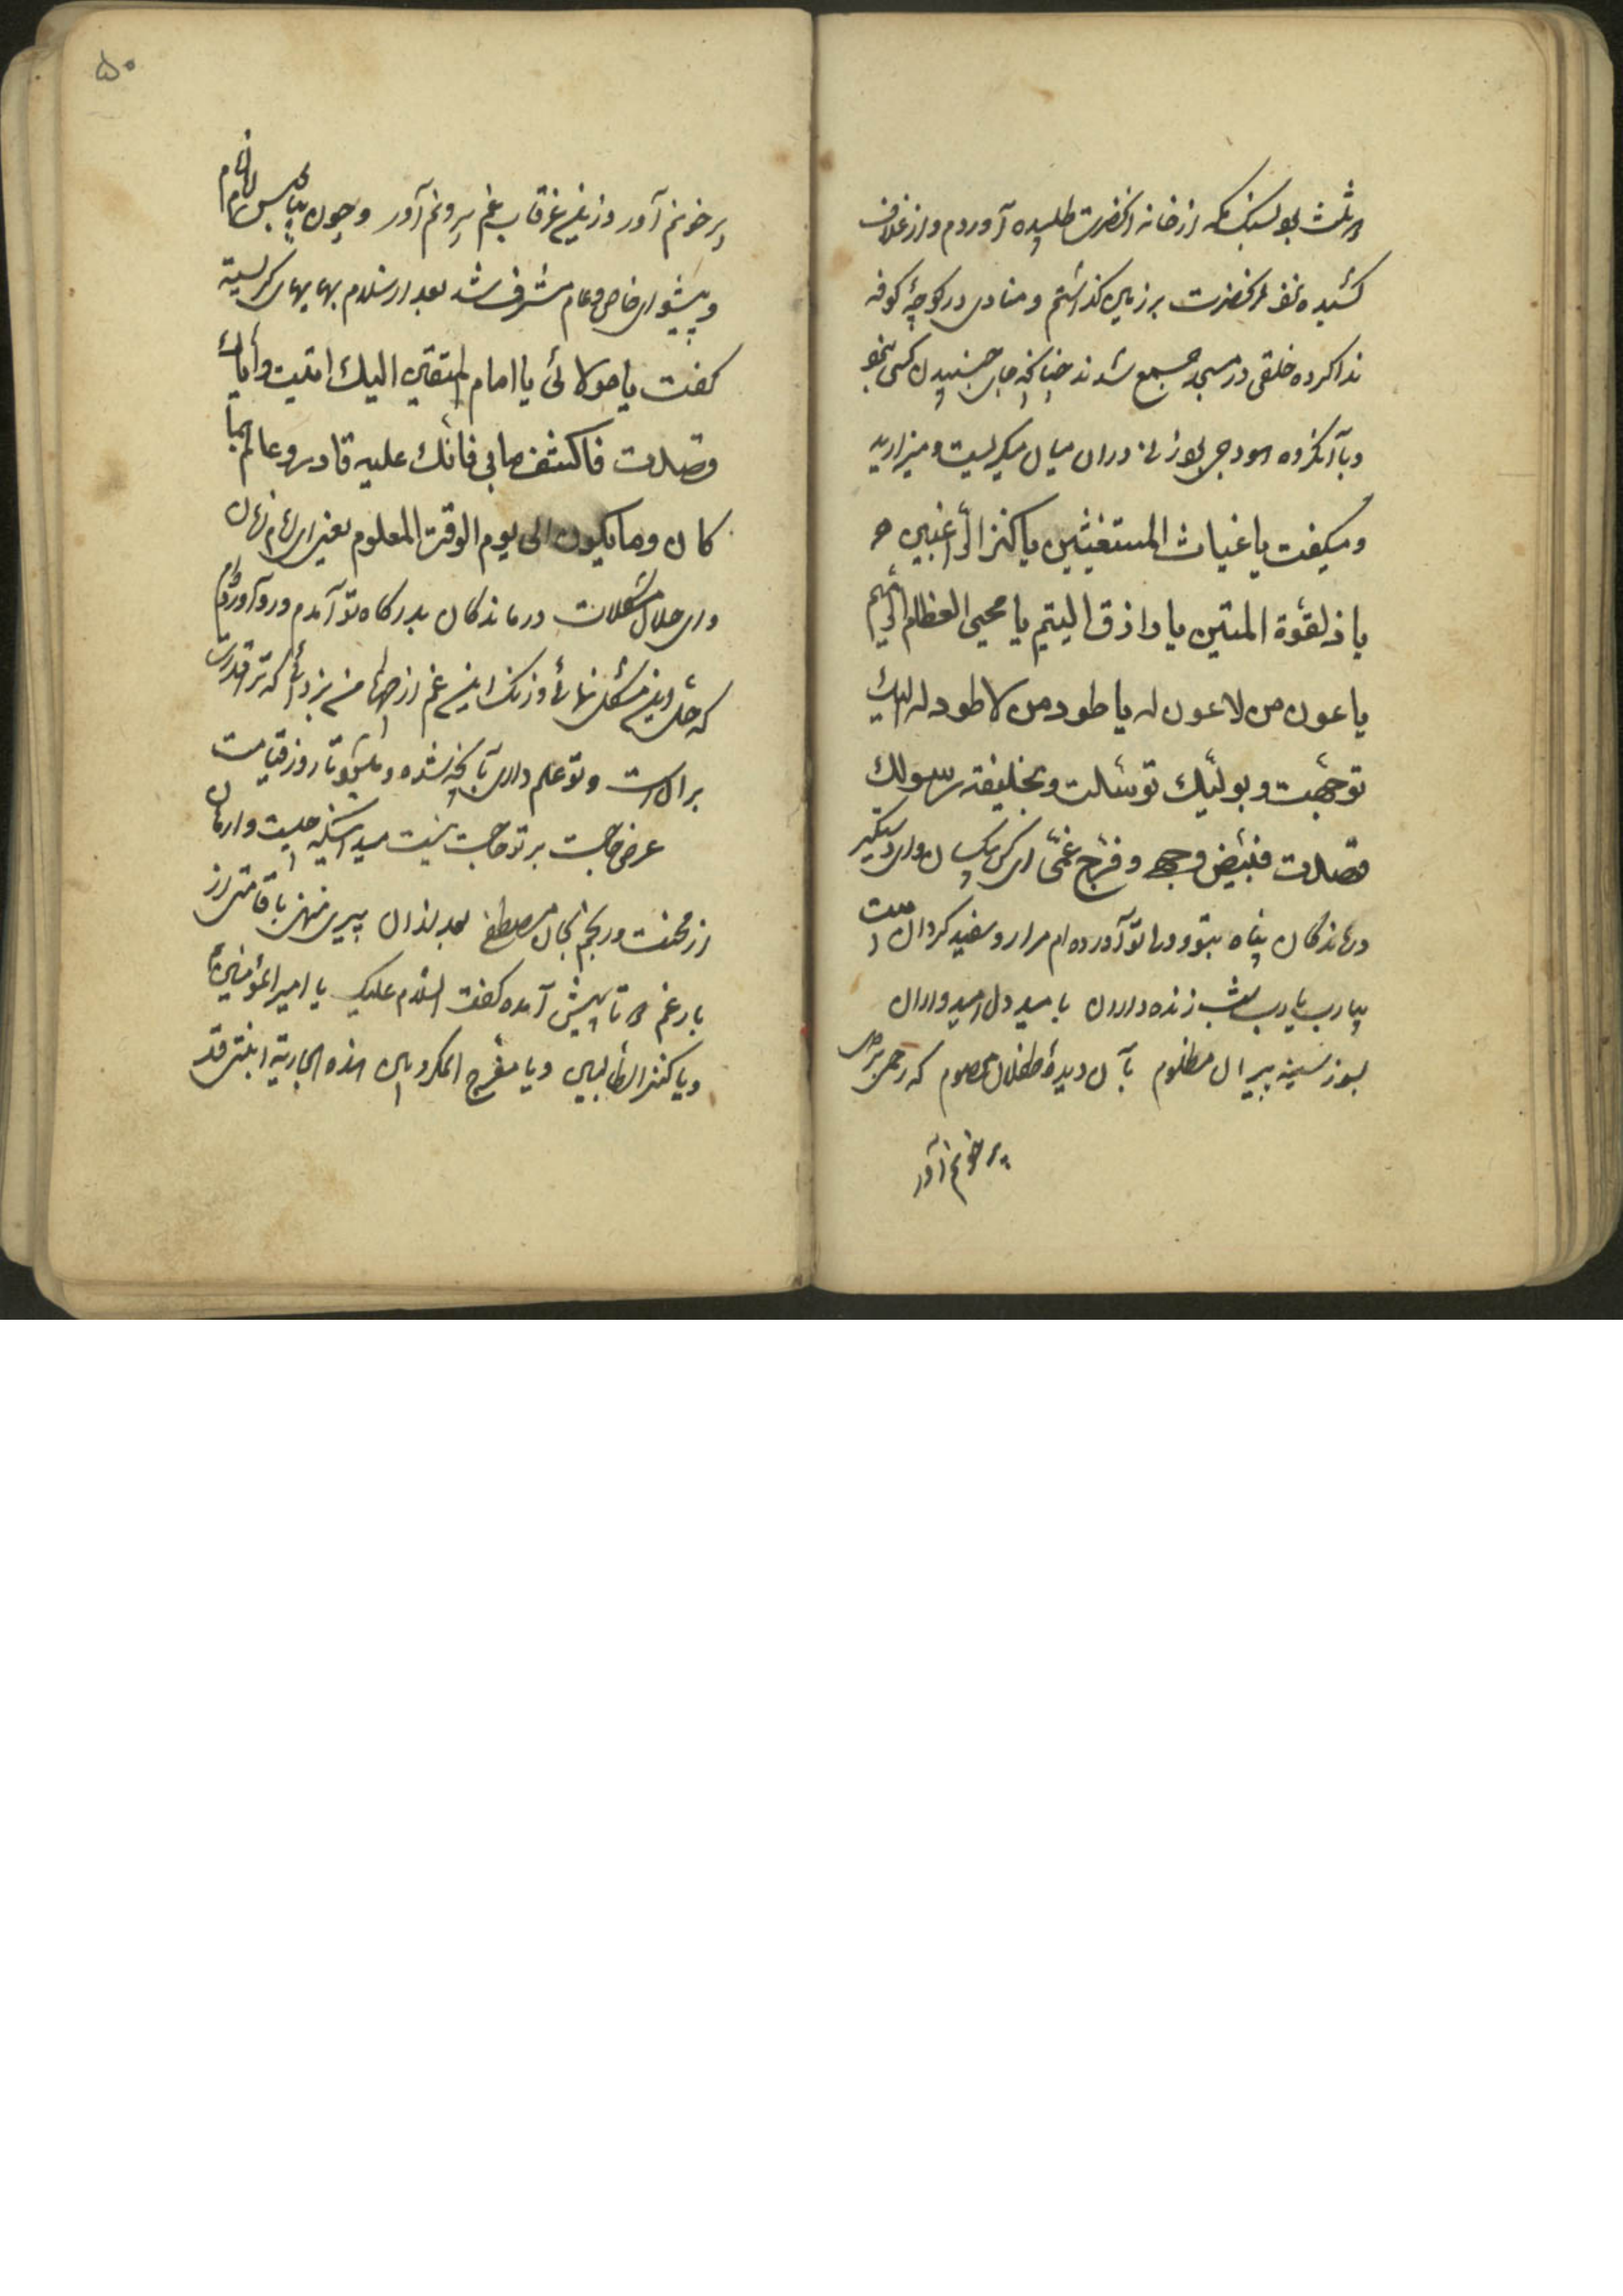 و ثلث بود بسنگ مکه از خانه آنحضرت طلبیده آوردم و از غلاف
کشیده نزد آنحضرت بر زمین گذاشتم و منادی در کوچهٔ کوفه
ندا کرده خلقی در مسجد جمع شدند چنانکه جای جنبیدن کسی نبود
و با آنگروه هودجی بود زنی در ان میان میگریست و میزارید
و میگفت یا غیاث المستغیثین یا کنز الراغبین و
یا ذلقوة المتین یا رازق الیتیم یا محیی العظام الرمیم
یا عون من لا عون له یا طود من لا طود له الیك
توجهت و بولیك توسلت و بخلیفة رسولك
قصدت فبیض وجهی و فرج غمی ای کس بیکسان و ای دستگیر
درماندگان پناه بتو و ولی تو آورده ام مرا رو سفید گردان
بیا رب یا رب شب زنده داران بامید دل امیدواران
بسوز سینه پیران مظلوم بآن دیدهٔ طفلان معصوم که رحمی بر دل
پر خونم آور
۵۰
پر خونم آور وزین غرقاب غم بیرونم آور و چون بپابوس امام انام
و پیشوای خاص و عام مشرف شد بعد از سلام بهای بهای گریسته
گفت یا مولائی یا امام المتقین الیك اتیت و ایاك
قصدت فاکشف ما بی فانك علیه قادر و عالم بما
کان و ما یکون الی یوم الوقت المعلوم یعنی ای امام زمان
و ای حلال مشکلات درماندگان بدرگاه تو آمدم و رو آوردم
که حل این مشکل نمائی و زنگ این غم از من بزدائی که ترا قدرت
بر آن است و تو علم داری بآنچه شده و میشود تا روز قیامت
عرض حاجت بر تو حاجت نیست میدانی که چیست
از محنت و رنجم بجان مصطفی بعد از ان پیری منحنی با قامتی از
بار غم دو تا پیش آمده گفت السلام علیک یا امیر المؤمنین
و یا کنز الطالبین و یا مفرج المکروبین هذه الجاریة ابنتی قد